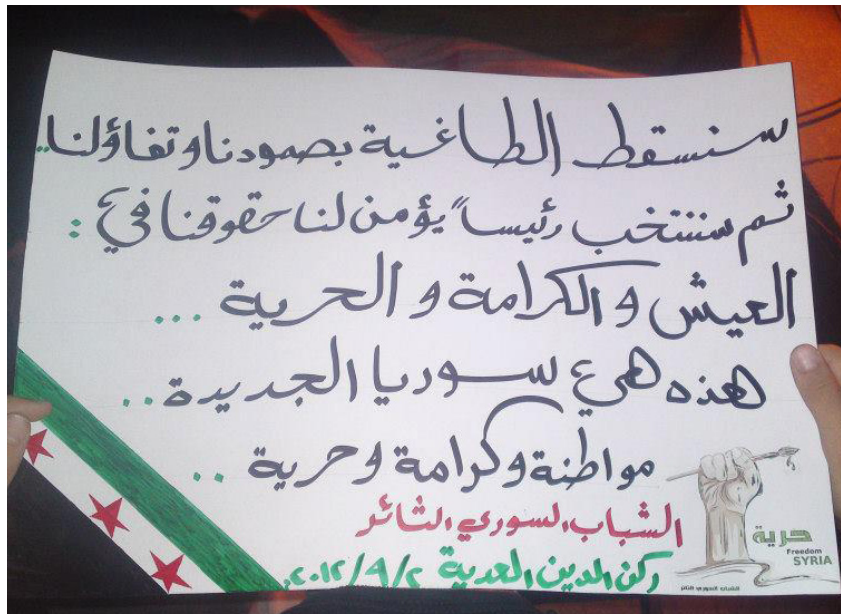 سنسقط الطاغية بصمودنا وتفاؤلنا..
ثم سننتخب رئيساً يؤمن لنا حقوقنا في :
العيش و الكرامة و الحرية ...
هذه هي سوريا الجديدة ..
مواطنة وكرامة وحرية ..
الشباب السوري الثائر
ركن الدين العدية ٢/٩/٢٠١٢
حرية
Freedom
SYRIA
الشباب السوري الثائر